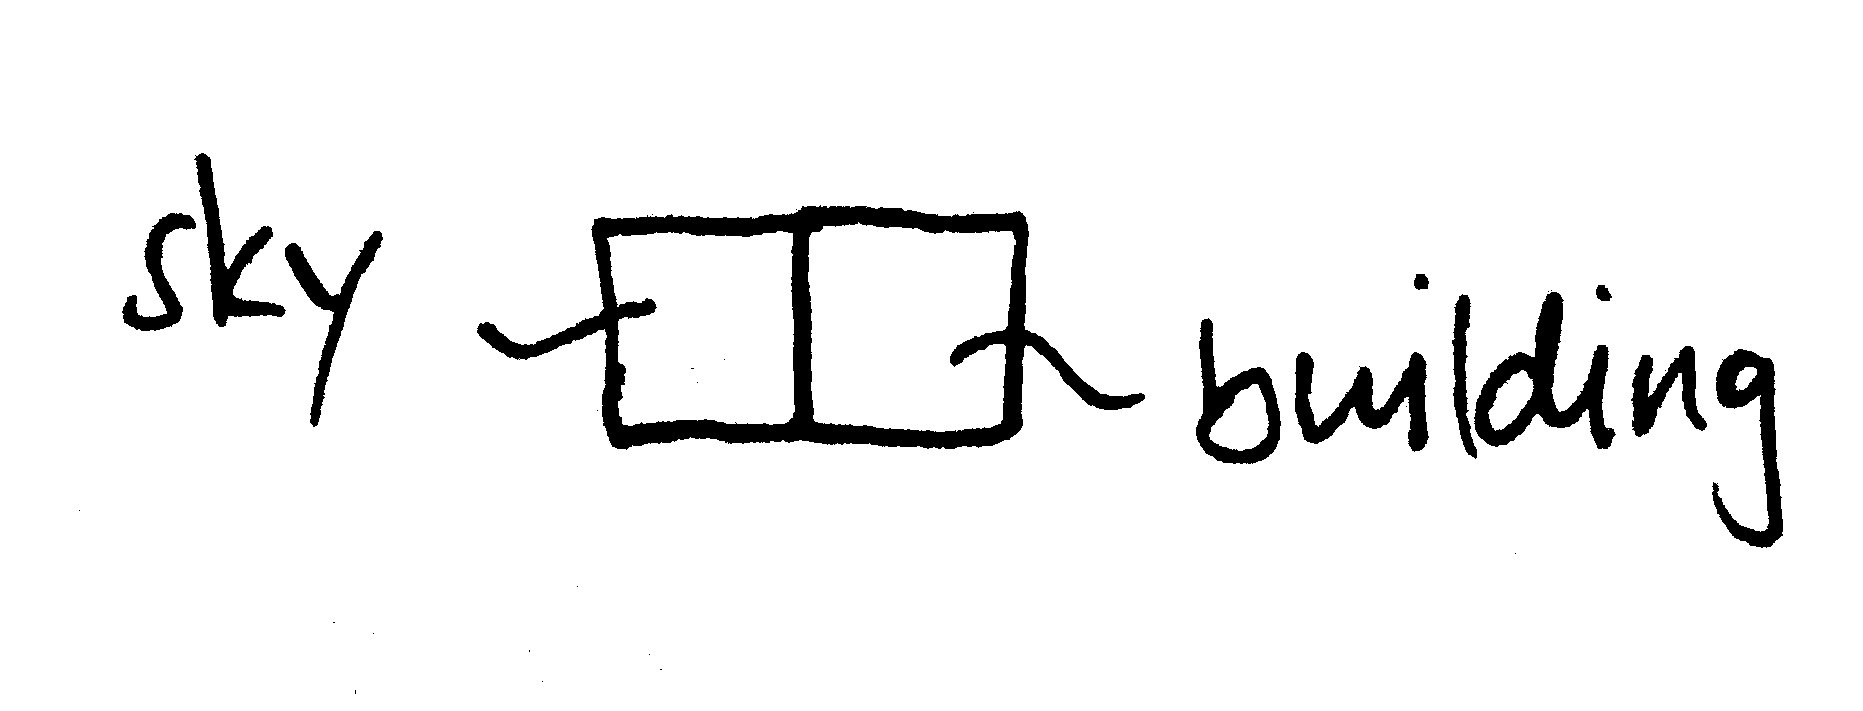 sky
building